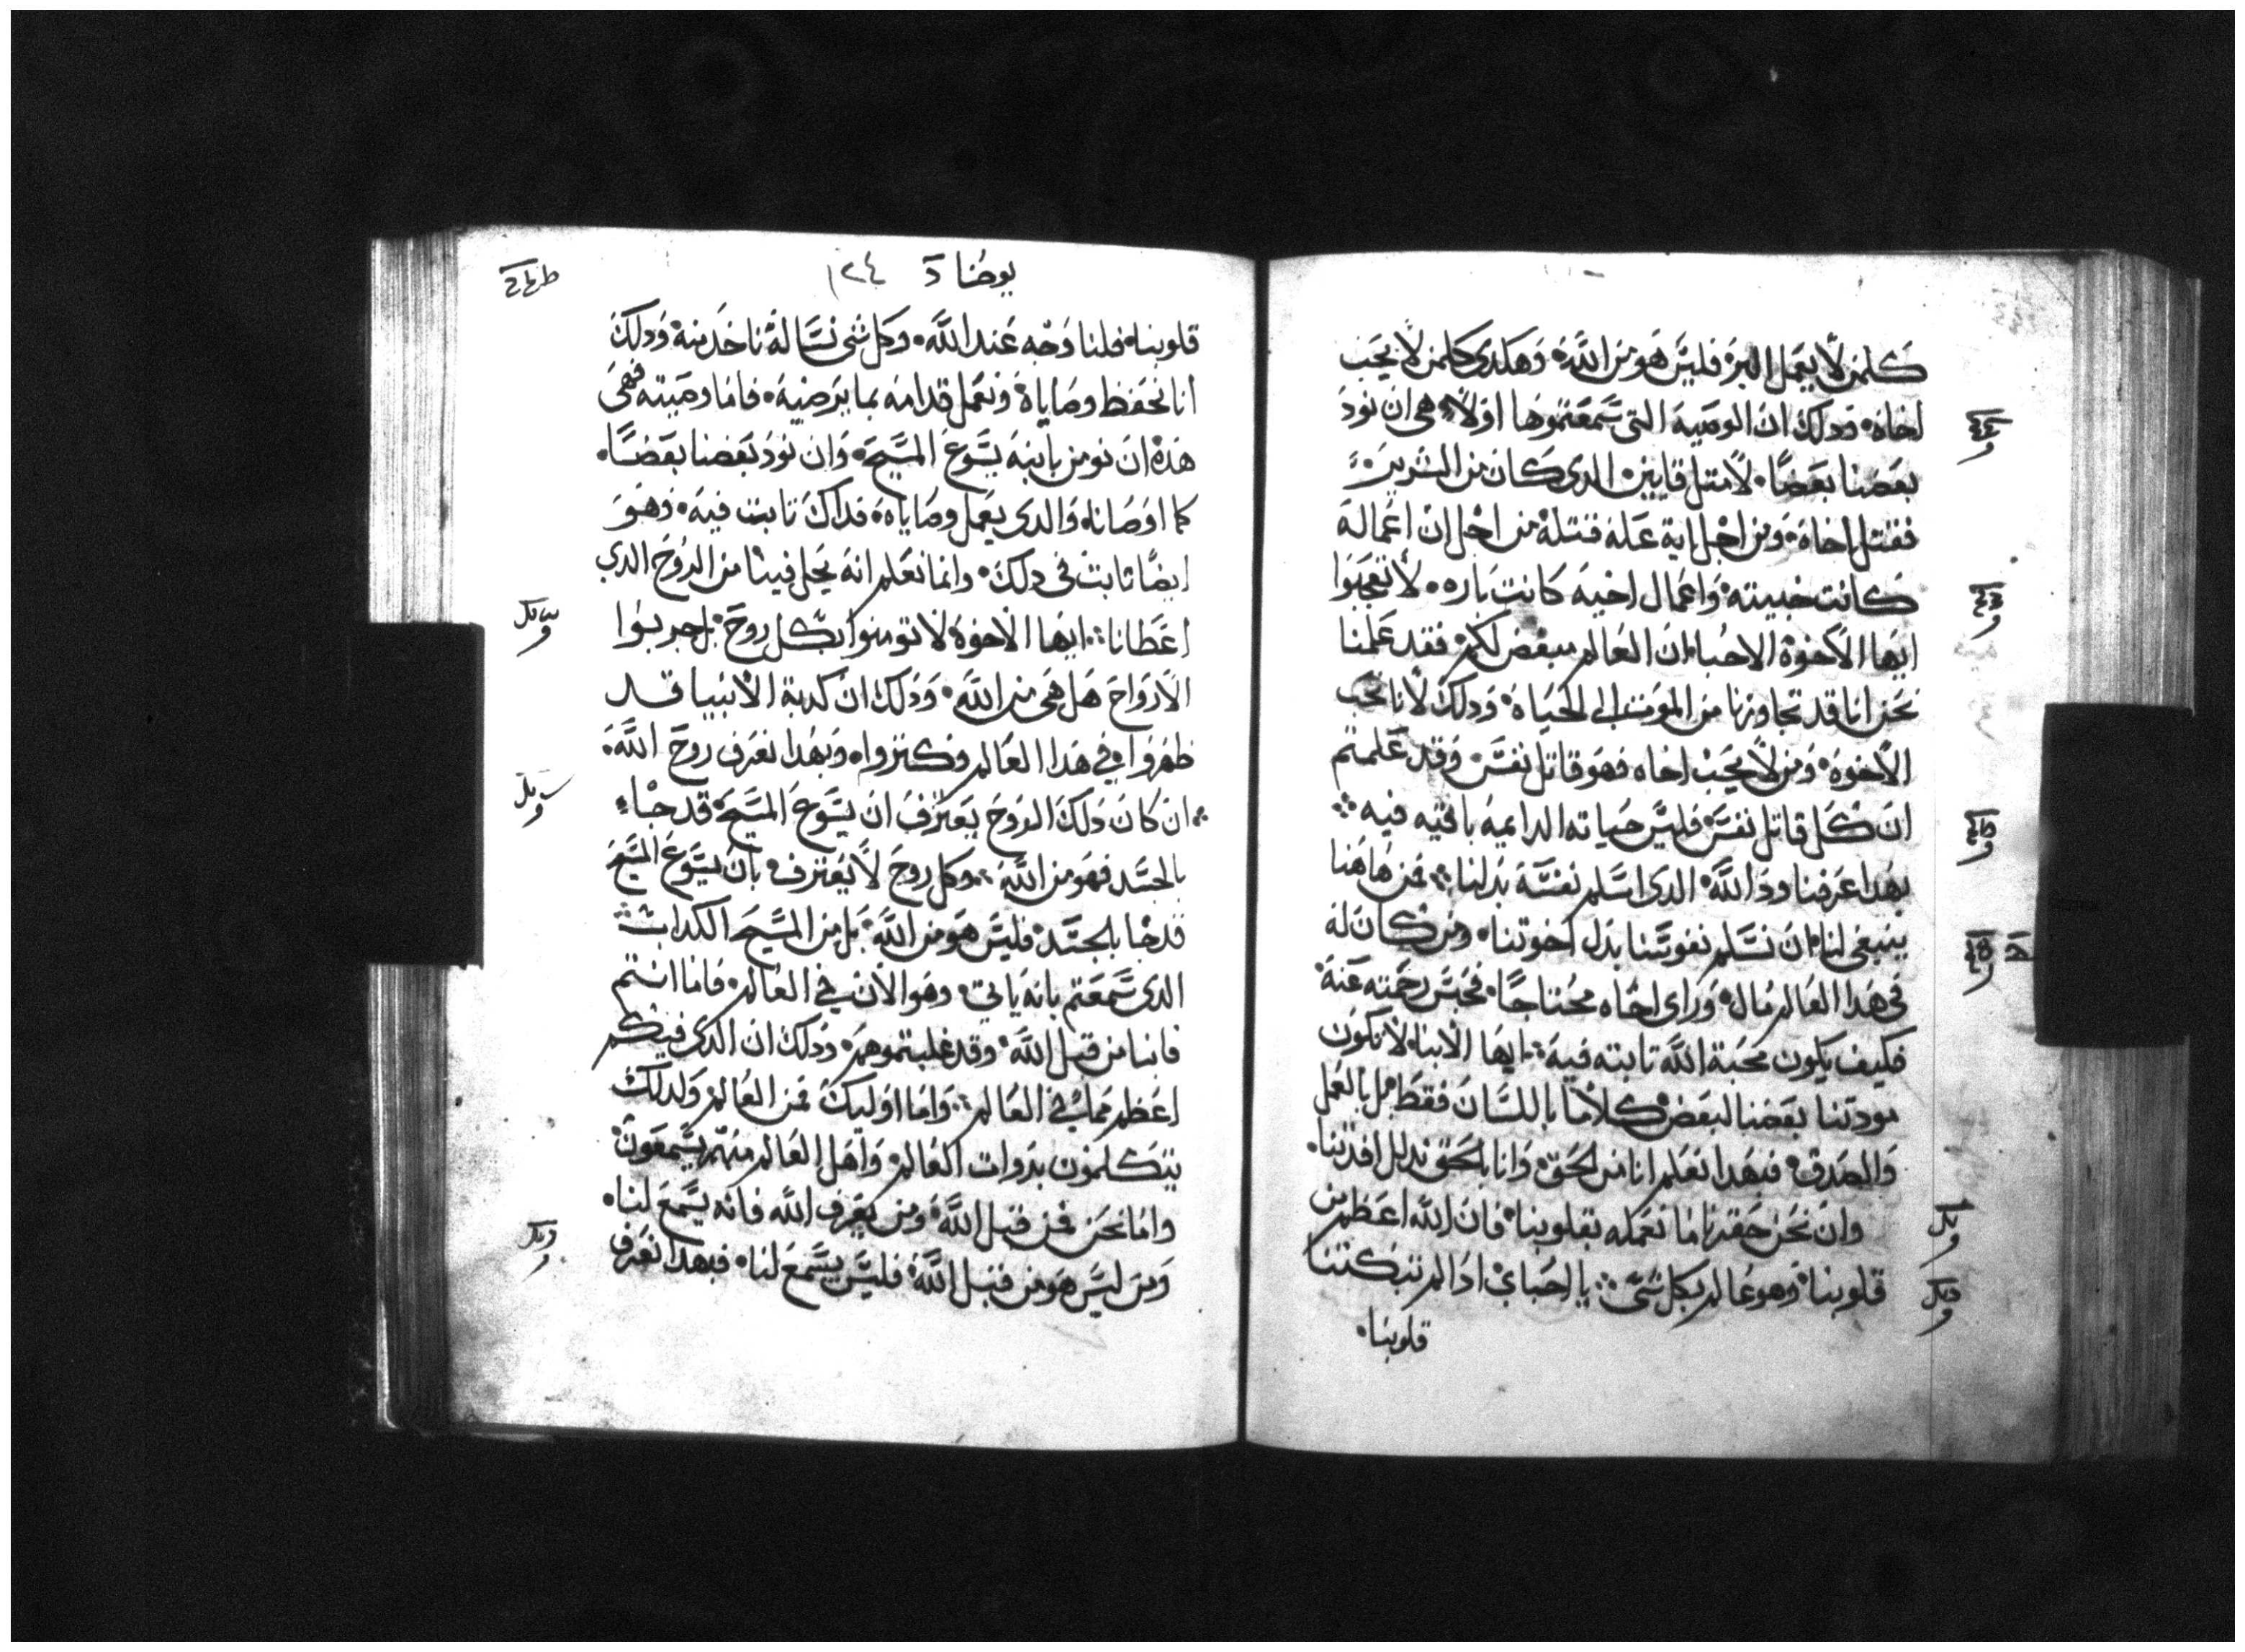 كلمن لا يعمل البر فليس هو من الله وهكدى كلمن لا يحب
اخاه ودلك ان الوصية التى سمعتموها اولا هى ان نود
بعضنا بعضا لا متل قايين الدى كان من الشرير
فقتل اخاه ومن اجل اية عله قتله من اجل ان اعماله
كانت خبيته واعمال اخيه كانت باره لا تعجبوا
ايها الاخوة الاحبا ان العالم مبغض لكم فقد علمنا
نحن انا قد تجاوزنا من الموت الى الحياة ودلك لانا نحب
الاخوة ومن لا يحب اخاه فهو قاتل نفس وقد علمتم
ان كل قاتل نفس فليس حياته الدايمه باقيه فيه
بهدا عرفنا ود الله الدى اسلم نفسه بدلنا فمن هاهنا
ينبغى لنا ان نسلم نفوسنا بدل اخوتنا ومن كان له
فى هدا العالم مال وراى اخاه محتاجا فحبس رحمته عنه
فكيف يكون محبة الله تابته فيه ايها الابنا لا تكون
مودتنا بعضنا لبعض كلاما باللسان فقط بل بالعمل
والصدق فبهدا نعلم انا من الحق وانا بالحق ندلل افدتنا
وان نحن حقرنا ما نعمله بقلوبنا فان الله اعظم من
قلوبنا وهو عالم بكل شى يا احباى ادا لم تبكتنا
قلوبنا
يوحنا ١٢٤
قلوبنا فلنا وجه عند الله وكل شى نساله ناخد منه ودلك
انا نحفظ وصاياه ونعمل قدامه بما يرضيه فاما وصيته فهى
هده ان نومن بابنه يسوع المسيح وان نود بعضنا بعضا
كما اوصانا والدى يعمل وصاياه فداك تابت فيه وهو
ايضا ثابت فى دلك وانما نعلم انه يحل فينا من الروح الدى
اعطانا ايها الاخوة لا تومنوا بكل روح بل جربوا
الارواح هل هى من الله ودلك ان كدبة الانبيا قد
ظهروا فى هدا العالم وكتروا وبهدا نعرف روح الله
ان كان دلك الروح يعترف ان يسوع المسيح قد جاء
بالجسد فهو من الله وكل روح لا يعترف بان يسوع المسيح
قد جا بالجسد فليس هو من الله بل من المسيح الكداب
الدى سمعتم بانه ياتى وهو الان فى العالم فاما انتم
فانبا من قبل الله وقد غلبتموهم ودلك ان الدى فيكم
اعظم مما فى العالم واما اوليك فمن العالم ولدلك
يتكلمون بدوات العالم واهل العالم منهم يسمعون
واما نحن فمن قبل الله ومن يعرف الله فانه يسمع لنا
ومن ليس هو من قبل الله فليس يسمع لنا فبهدا نعرف